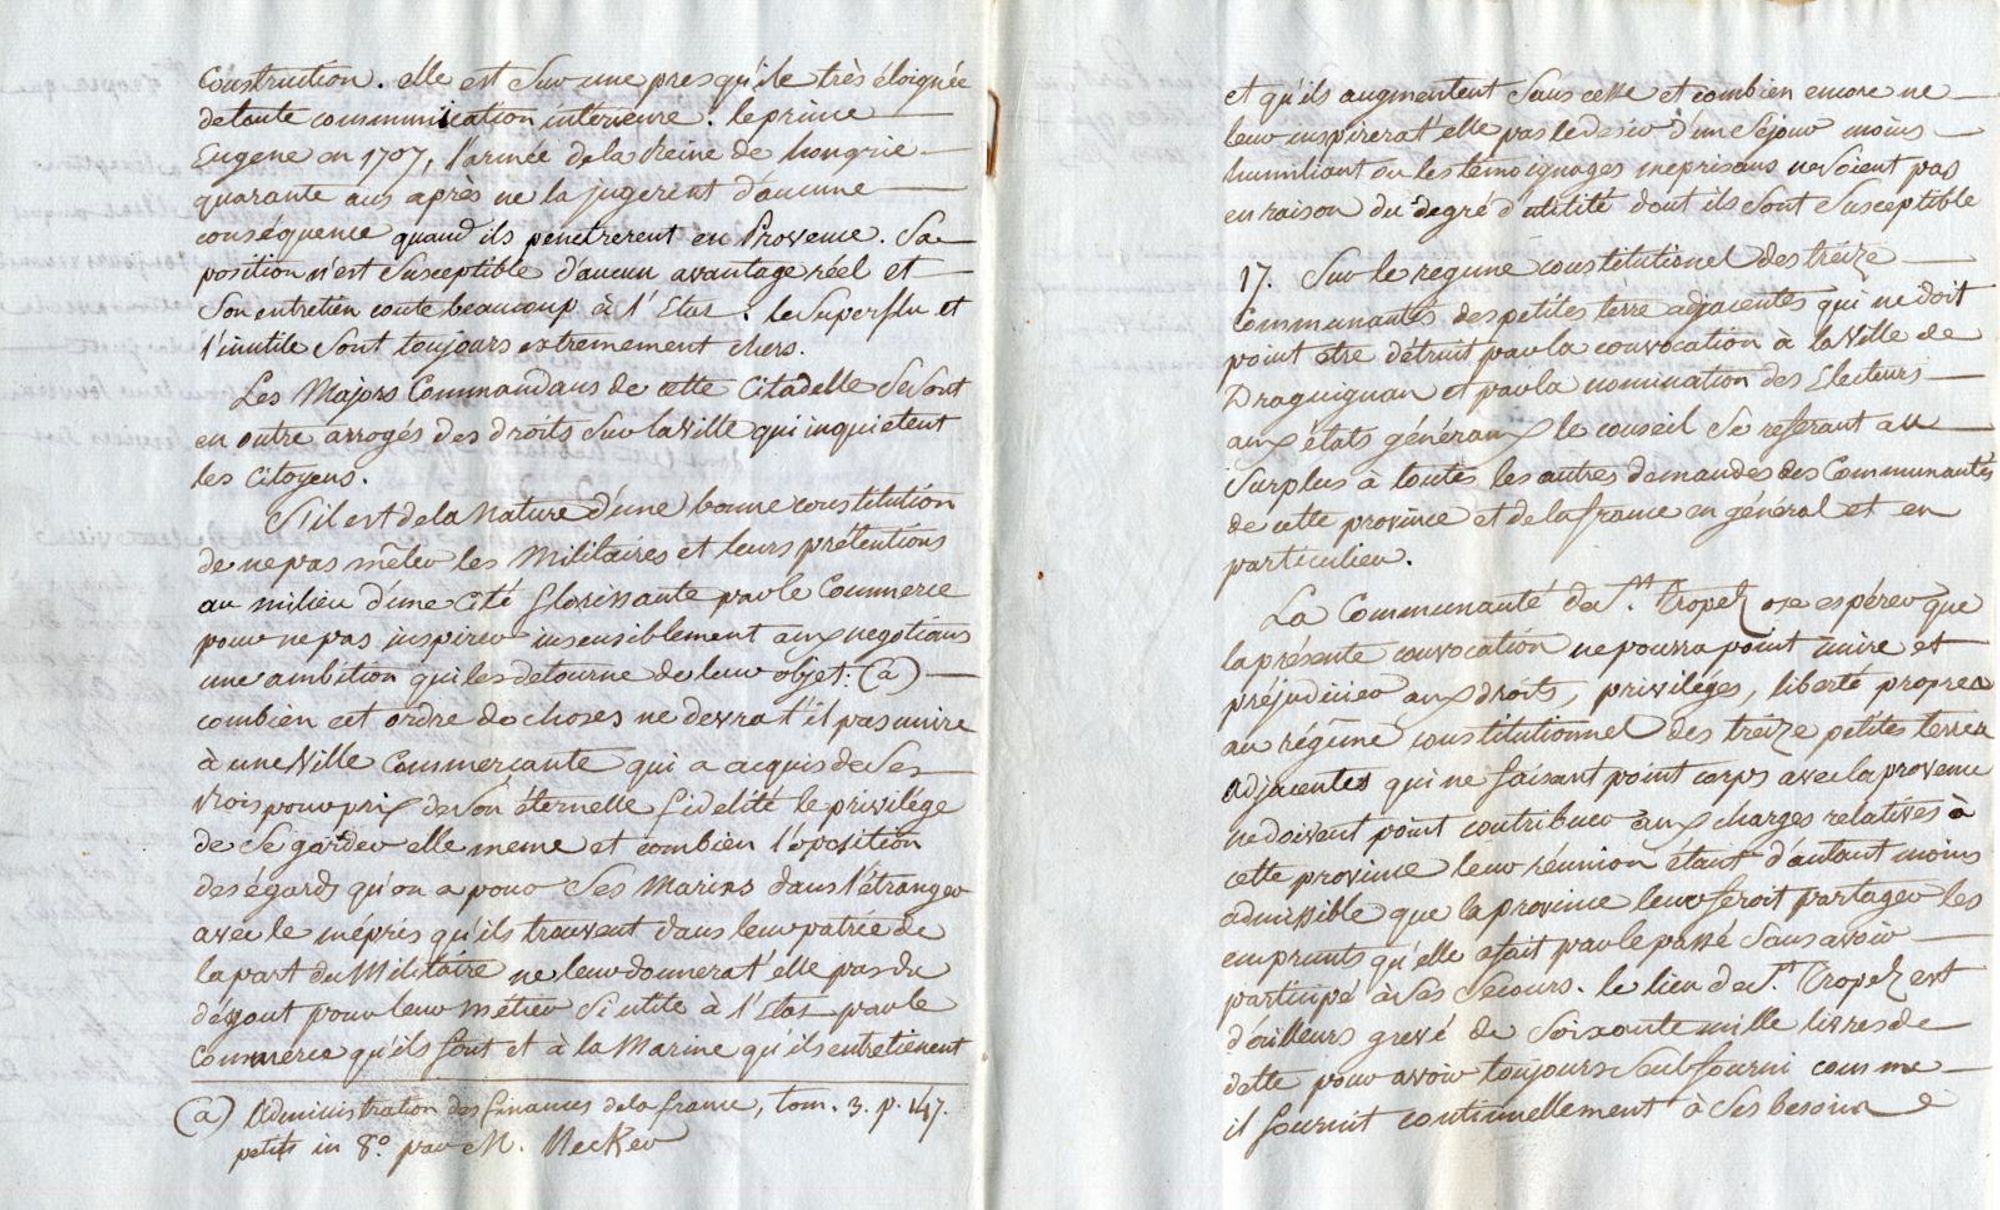 Construction. elle est sur une presqu'ile très éloignée
de toute communication intérieure. le prince
Eugene en 1707, l'armée de la Reine de hongrie
quarante ans après ne la jugerent d'aucune
conséquence quand ils penetrerent en Provence. Sa
position n'est susceptible d'aucun avantage réel et
son entretien coute beaucoup à l'Etat. le superflu et
l'inutile sont toujours extremement chers.
Les Majors Commandans de cette Citadelle se sont
en outre arrogés des droits sur la ville qui inquietent
les citoyens.
S'il est de la nature d'une bonne constitution
de ne pas mêler les militaires et leurs prétentions
au milieu d'une cité florissante par le Commerce
pour ne pas inspirer insensiblement aux negotians
une ambition qui les detourne de leur objet: (a)
combien cet ordre de choses ne devra t'il pas nuire
à une ville Commerçante qui a acquis de ses
Rois pour prix de son éternelle fidelité le privilége
de se garder elle meme et combien l'oposition
des égards qu'on a pour ses marins dans l'étranger
avec le mépris qu'ils trouvent dans leur patrie de
la part du Militaire ne leur donnerat'elle pas du
dégout pour leur métier si utile à l'Etat par le
Commerce qu'ils font et à la Marine qu'ils entretienent
(a) Administration des finances de la france, tom. 3. p. 147.
petit in 8.° par M. Necker
et qu'ils augmentent sans cesse et combien encore ne
leur inspirerat'elle pas le desir d'un séjour moins
humiliant ou les témoignages meprisans ne soient pas
en raison du degré d'utilité dont ils sont susceptible
17. Sur le regime constitutionel des treize
Communautés des petites terre adjacentes qui ne doit
point etre détruit par la convocation à la ville de
Draguignan et par la nomination des Electeurs
aux états généraux le conseil se referant au
surplus à toutes les autres demandes des Communautés
de cette province et de la france en général et en
particulier.
La Communauté de St. Tropez ose espérer que
la présente convocation ne pourra point nuire et
préjudicier aux droits, priviléges, liberté propres
au régime constitutionnel des treize petites terres
adjacentes qui ne faisant point corps avec la provence
ne doivent point contribuer aux charges relatives à
cette province leur réunion étant d'autant moins
admissible que la province leur feroit partager les
emprunts qu'elle a fait par le passé sans avoir
participé à ses secours. le lieu de St. Tropez est
d'ailleurs grevé de soixante mille livres de
dette pour avoir toujours seul fourni comme
il fournit continuellement à ses besoins